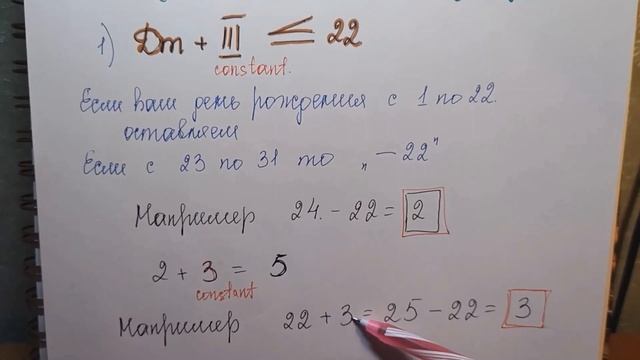 1) Дт + III ≤ 22
constant.
Если ваш день рождения с 1 по 22.
оставляем
Если с 23 по 31 то „ – 22"
Например 24. - 22 = 2
2 + 3 = 5
constant
Например 22 + 3 = 25 - 22 = 3